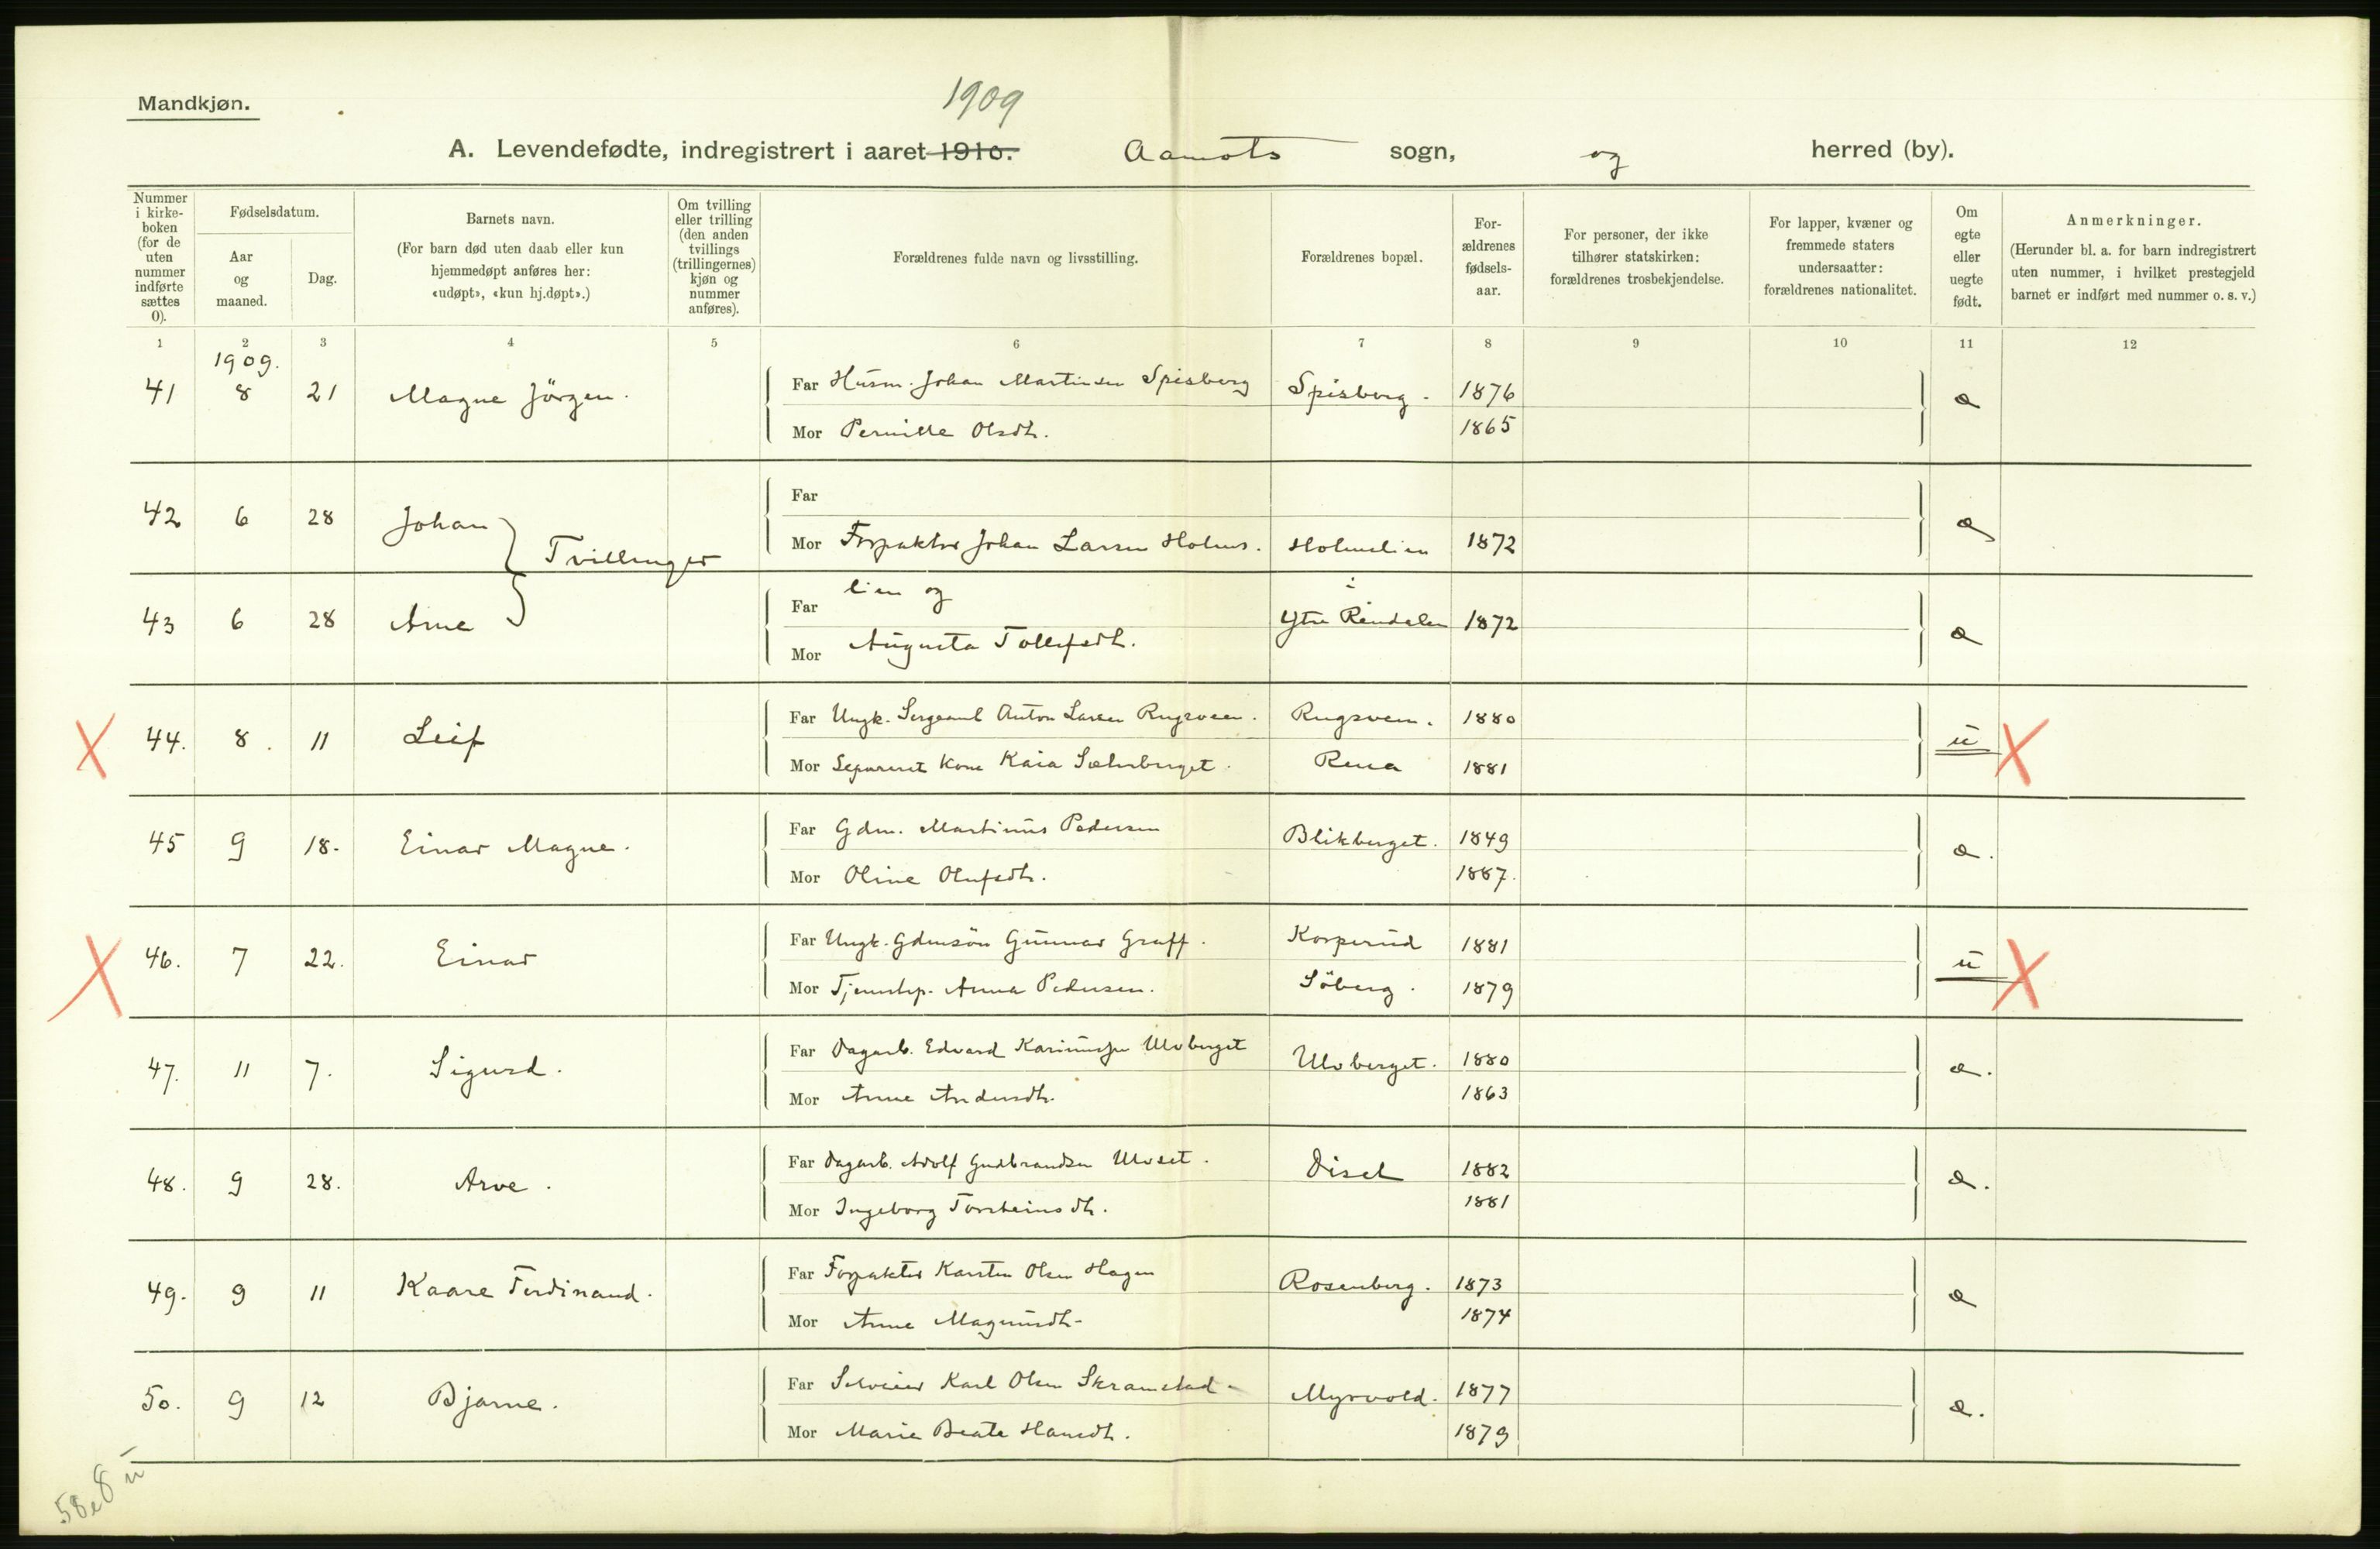 Mandkjøn.
1909
A. Levendefødte, indregistrert i aaret 1910. Aamots sogn, og herred (by).
Nummer i kirke- boken (for de uten nummer indførte sættes 0).
Fødselsdatum.
Aar og maaned.
Dag.
Barnets navn.
(For barn død uten daab eller kun hjemmedøpt anføres her: «udøpt», «kun hj.døpt».)
Om tvilling eller trilling (den anden tvillings (trillingernes) kjøn og nummer anføres).
Forældrenes fulde navn og livsstilling.
Forældrenes bopæl.
For- ældrenes fødsels- aar.
For personer, der ikke tilhører statskirken: forældrenes trosbekjendelse.
For lapper, kvæner og fremmede staters undersaatter: forældrenes nationalitet.
Om egte eller uegte født.
Anmerkninger.
(Herunder bl. a. for barn indregistrert uten nummer, i hvilket prestegjeld barnet er indført med nummer o. s. v.)
1 2 3 4 5 6 7 8 9 10 11 12
1909.
41 8 21 Magne Jörgen. Far Husm. Johan Martinsen Spisberg Spisberg. 1876 e
Mor Pernille Olsdt. 1865
42 6 28 Johan Far e
Tvillinger Mor Forpakter Johan Larsen Holms. Holmslien 1872
43 6 28 Arne Far lien og i Ytre Rendalen 1872 e
Mor Augusta Tollefsdt.
X 44. 8. 11 Leif Far Ungk. Sergeant Anton Larsen Rugsveen. Rugsveen. 1880 u X
Mor Separeret Kone Kaia Sæterberget. Rena 1881
45 9 18. Einar Magne. Far Gdm. Martinus Pedersen Blikberget. 1849 e.
Mor Oline Olufsdt. 1887.
X 46. 7 22. Einar Far Ungk. Gdmsön Gunnar Graff. Korperud 1881 u X
Mor Tjenestep. Anna Pedersen. Söberg. 1879
47. 11 7. Sigurd. Far Dagarb. Edvard Ulvberget Ulvberget. 1880 e.
Mor Anne Andersdt. 1863
48. 9 28. Arve. Far Dagarb. Adolf Gudbrandsen Ulvset. Diset 1882 e.
Mor Ingeborg Torsteinsdt. 1881
49. 9 11 Kaare Ferdinand. Far Forpakter Karsten Olsen Hagen Rosenberg. 1873 e
Mor Anne Magnusdt. 1874
50. 9 12 Bjarne. Far Selveier Karl Olsen Skramstad. Myrvold. 1877 e.
Mor Marie Beate Hansdt. 1879
58e 8 u